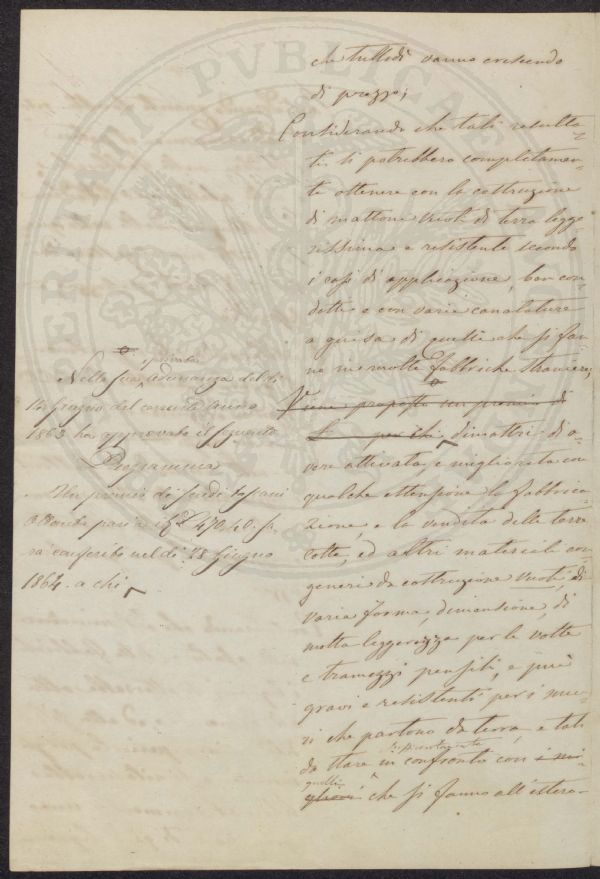 che tuttodì vanno crescendo
di prezzo;
Considerando che tali resulta-
ti si potrebbero completamen-
te ottenere con la costruzione
di mattoni vuoti di terra legge-
rissima e resistente secondo
i casi di applicazione, ben con-
dotti e con varie canalature
a guisa di quelli che si fan-
no in molte fabbriche straniere;
Viene proposto un premio di
L per chi dimostri di a-
vere attivata e migliorata con
qualche estensione la fabbrica-
zione, e la vendita delle terre
cotte, ed altri materiali con-
generi da costruzione vuoti, di
varia forma, dimensione, di
molta leggerezza per le volte
e tramezzi pensili, e più
gravi e resistenti per i mu-
ri che partono da terra, e tali
da stare in confronto con i mi-
gliori quelli che si fanno all'estero-
Nella sua adunanza privata del dì
14 Giugno del corrente anno
1863 ha approvato il seguente
Programma
Un premio di Scudi toscani
pari a 470,40. sa-
rà conferito nel dì 28 Giugno
1864. a chi
PERITATI PVBLICAE